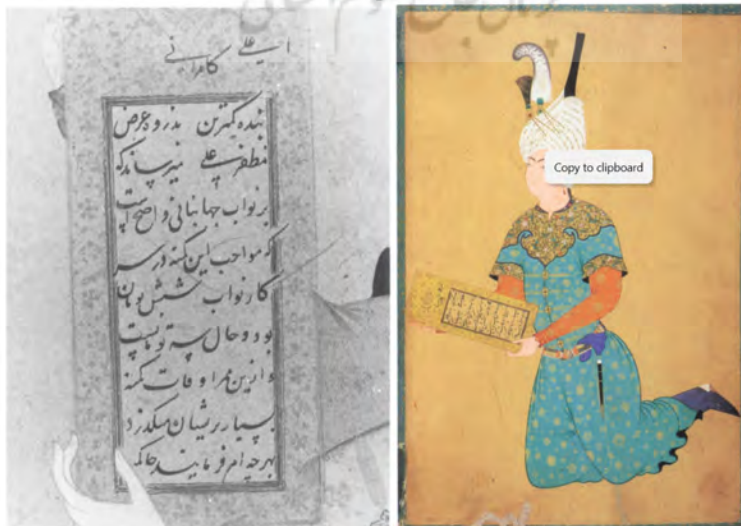 کامرانی
بنده کمترین بذروه عرض
مظفر علی میرساند که
بر نواب جهانبانی واضح است
که مواجب این کمینه در سر
کار نواب شش تومان
بود و حال سه تومانست
و ازین ممر اوقات کمینه
بسیار پریشان میگذرد
بهر چه امر فرمایند
Copy to clipboard